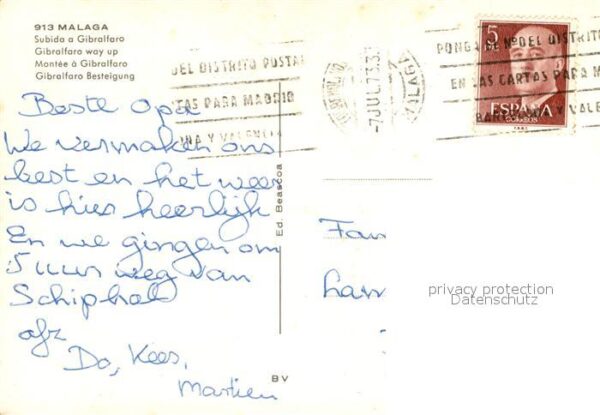 913 MALAGA
Subida a Gibralfaro
Gibralfaro way up
Montée à Gibralfaro
Gibralfaro Besteigung
Beste Opa
We vermaken ons
best en het weer
is hier heerlijk
En we gingen om
5 uur weg van
Schiphol
afz
Do, Kees,
Martien
Ed. Beascoa
BV
DEL DISTRITO POSTAL
CARTAS PARA MADRID
Y VALENCIA
-7 JUL 73
MALAGA
PONGA Nº DEL DISTRITO
EN LAS CARTAS PARA MA
BARNA Y VALEN
5
ESPAÑA
CORREOS
Fam
privacy protection
Datenschutz